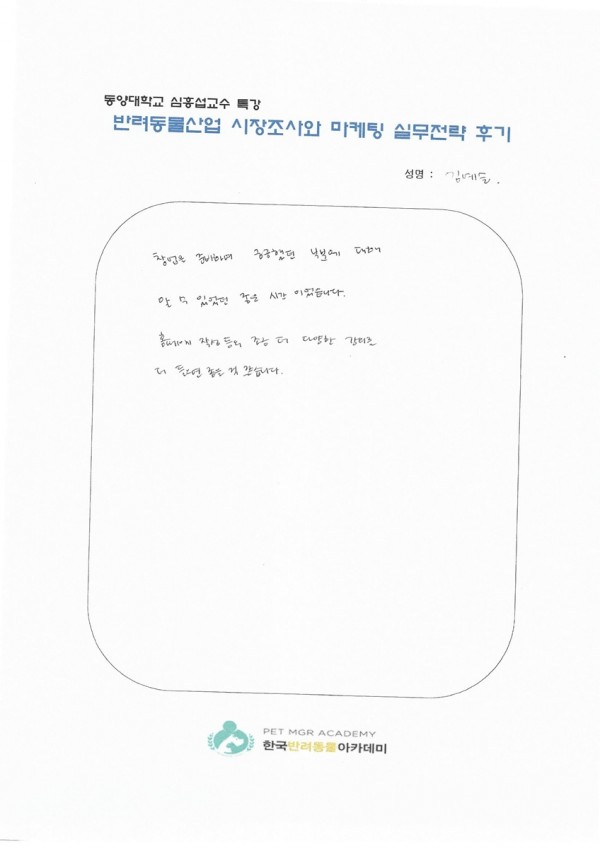 동양대학교 심홍섭교수 특강
반려동물산업 시장조사와 마케팅 실무전략 후기
성명 : 김예슬.
창업을 준비하며 궁금했던 부분에 대해
알 수 있었던 좋은 시간 이었습니다.
홈페이지 작성 등의 조금 더 다양한 강의도
더 들으면 좋을 것 같습니다.
PET MGR ACADEMY
한국반려동물아카데미